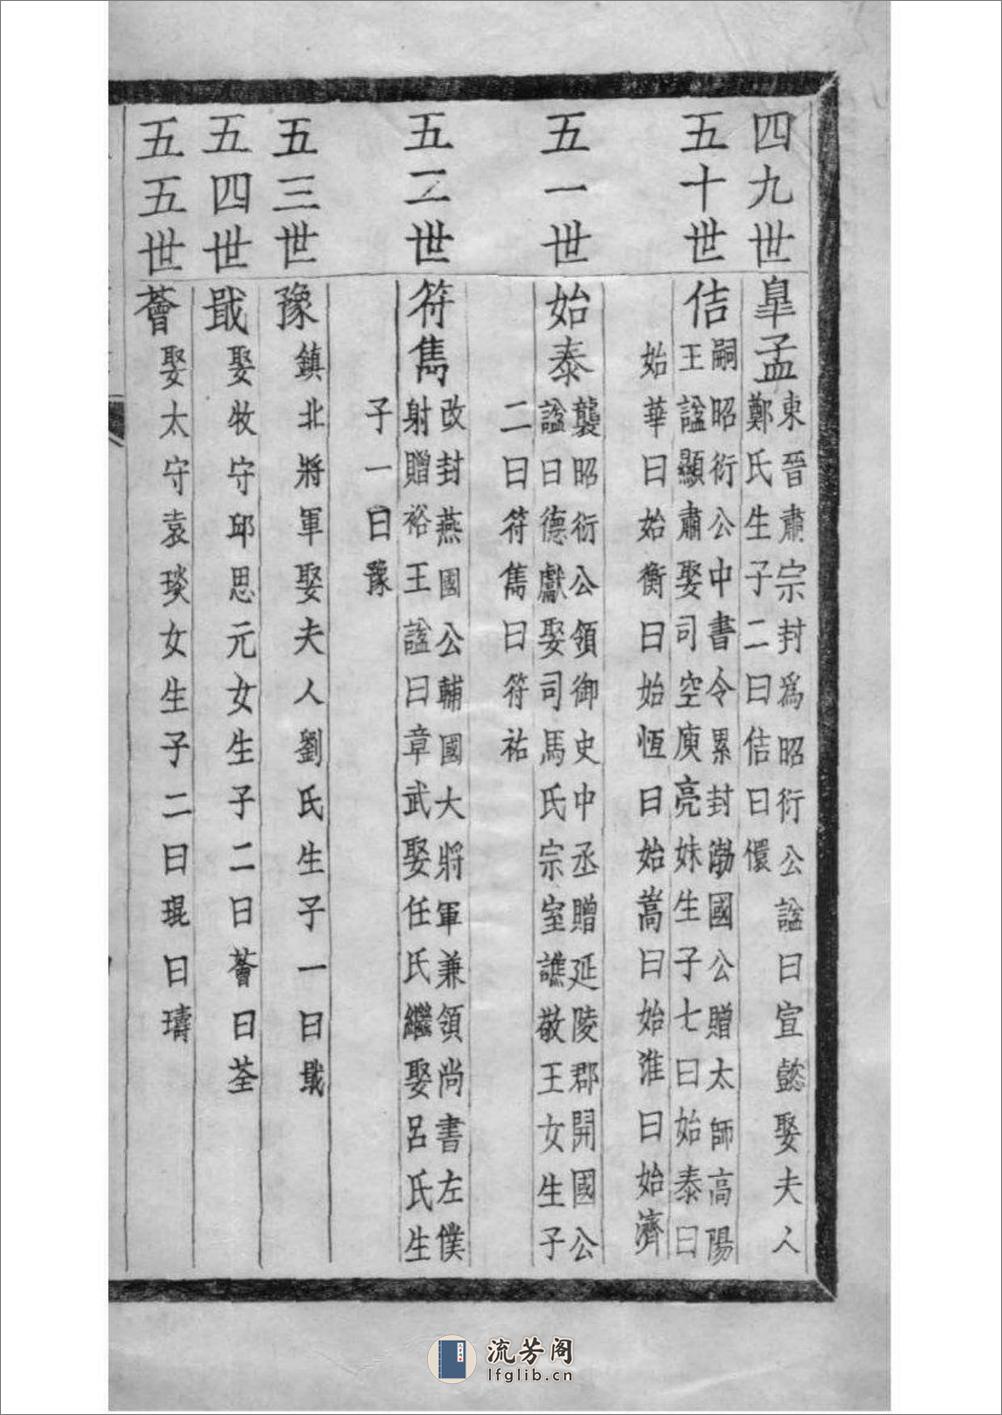 四九世
皐孟
東晉肅宗封爲昭衍公諡曰宣懿娶夫人
鄭氏生子二曰佶曰儇
五十世
佶
嗣昭衍公中書令累封渤國公贈太師高陽
王諡顯肅娶司空庾亮妹生子七曰始泰曰
始華曰始衡曰始恆曰始嵩曰始淮曰始濟
五一世
始泰
襲昭衍公領御史中丞贈延陵郡開國公
諡曰德獻娶司馬氏宗室譙敬王女生子
二曰符雋曰符祐
五二世
符雋
改封燕國公輔國大將軍兼領尚書左僕
射贈裕王諡曰章武娶任氏繼娶呂氏生
子一曰豫
五三世
豫
鎮北將軍娶夫人劉氏生子一曰戢
五四世
戢
娶牧守邱思元女生子二曰薈曰荃
五五世
薈
娶太守袁琰女生子二曰琨曰璹
流芳阁
lfglib.cn